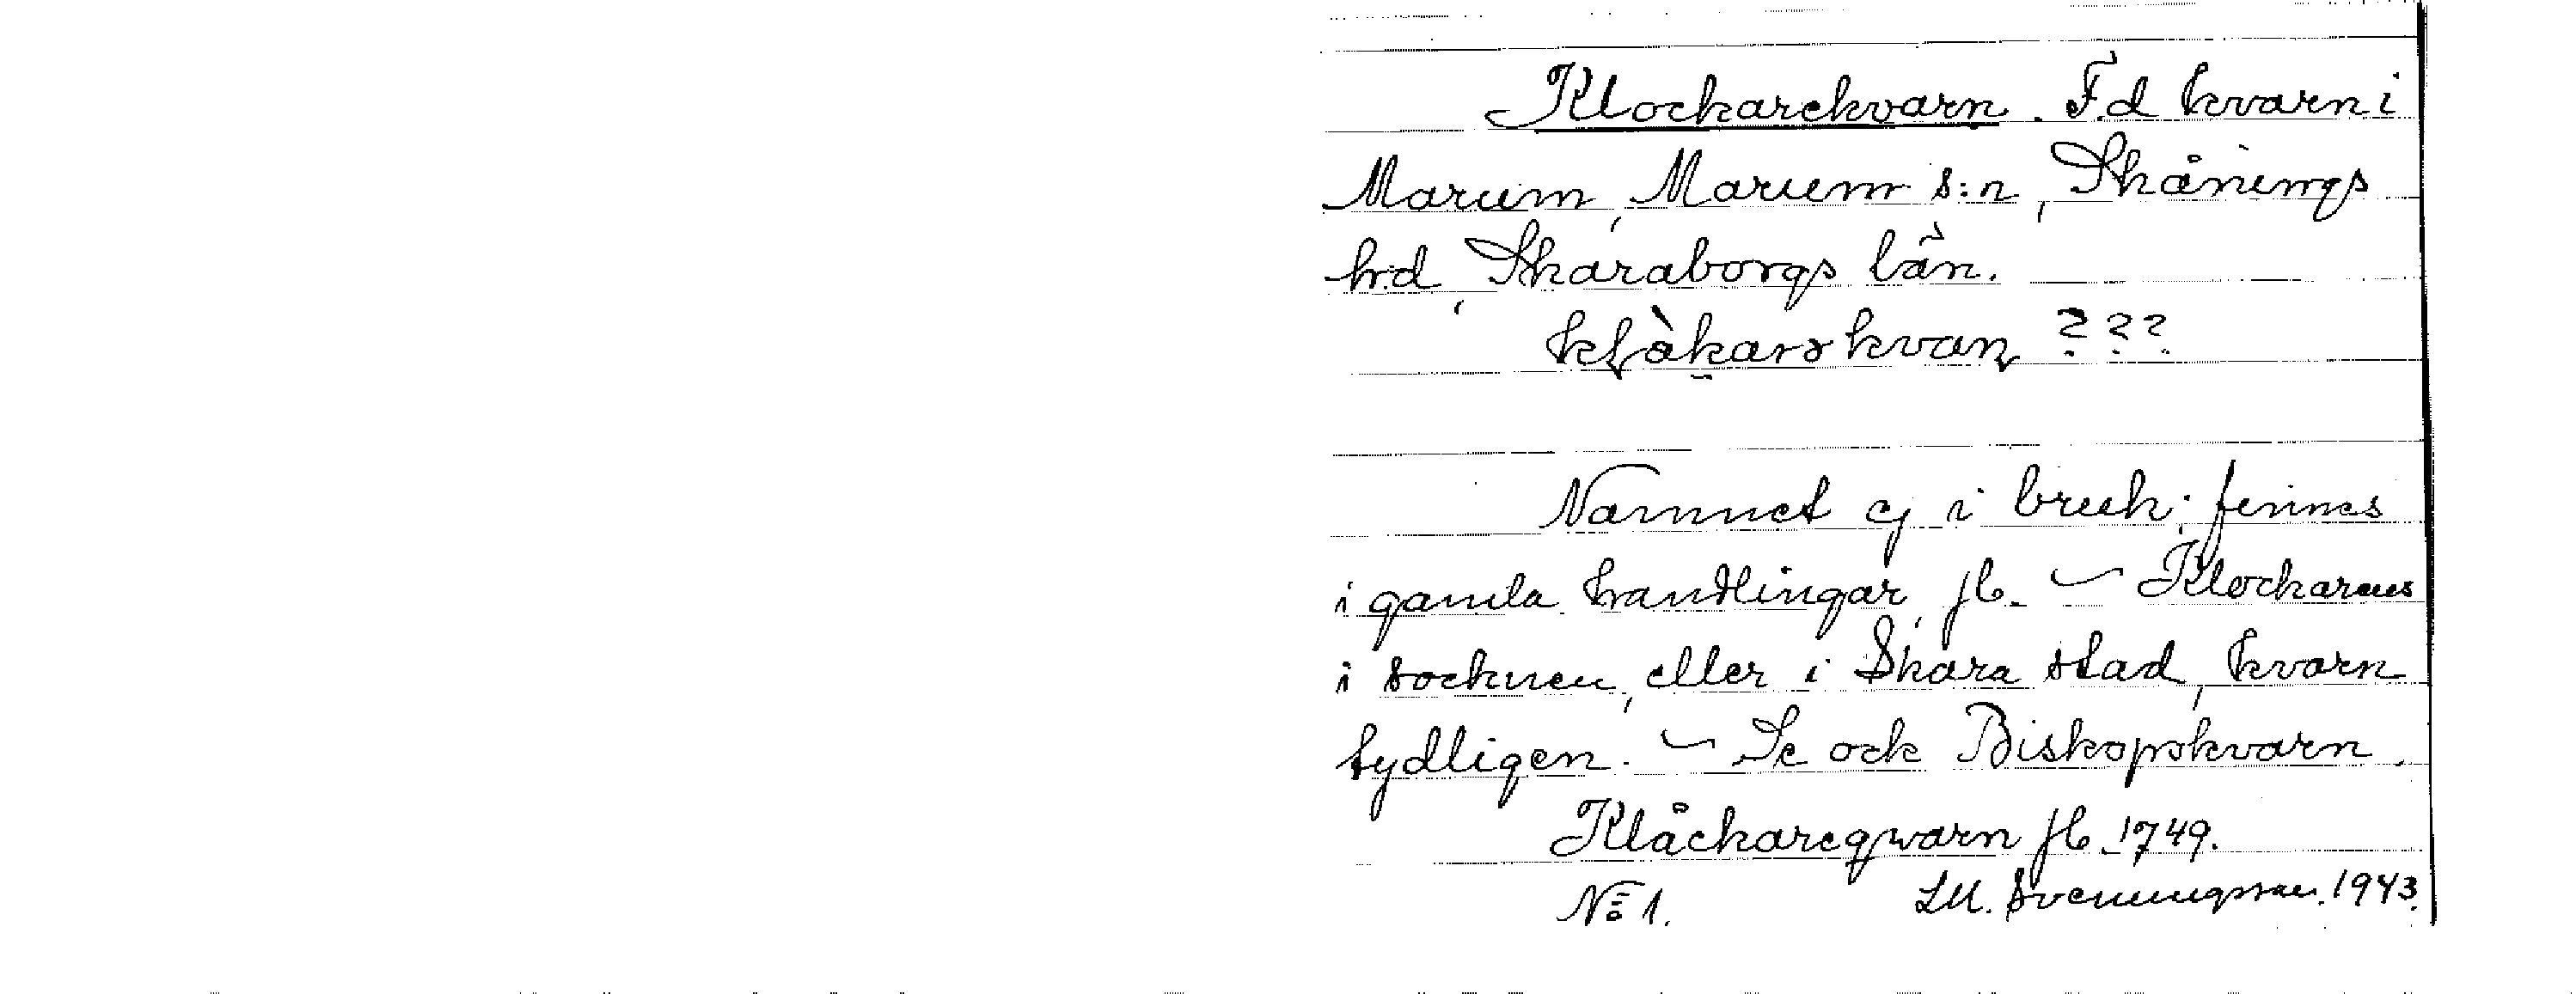 Klockarekvarn. F.d kvarn i
Marum, Marum s:n, Skånings
h:d, Skaraborgs län.
klòkarskvan ???
Namnet ej i bruk; finnes
i gamla handlingar, jb. – Klockarens
i socknen, eller i Skara stad, kvarn
tydligen. – Se ock Biskopskvarn.
Klåckareqwarn jb. 1749.
No 1. L.M. Svenungsson. 1943.